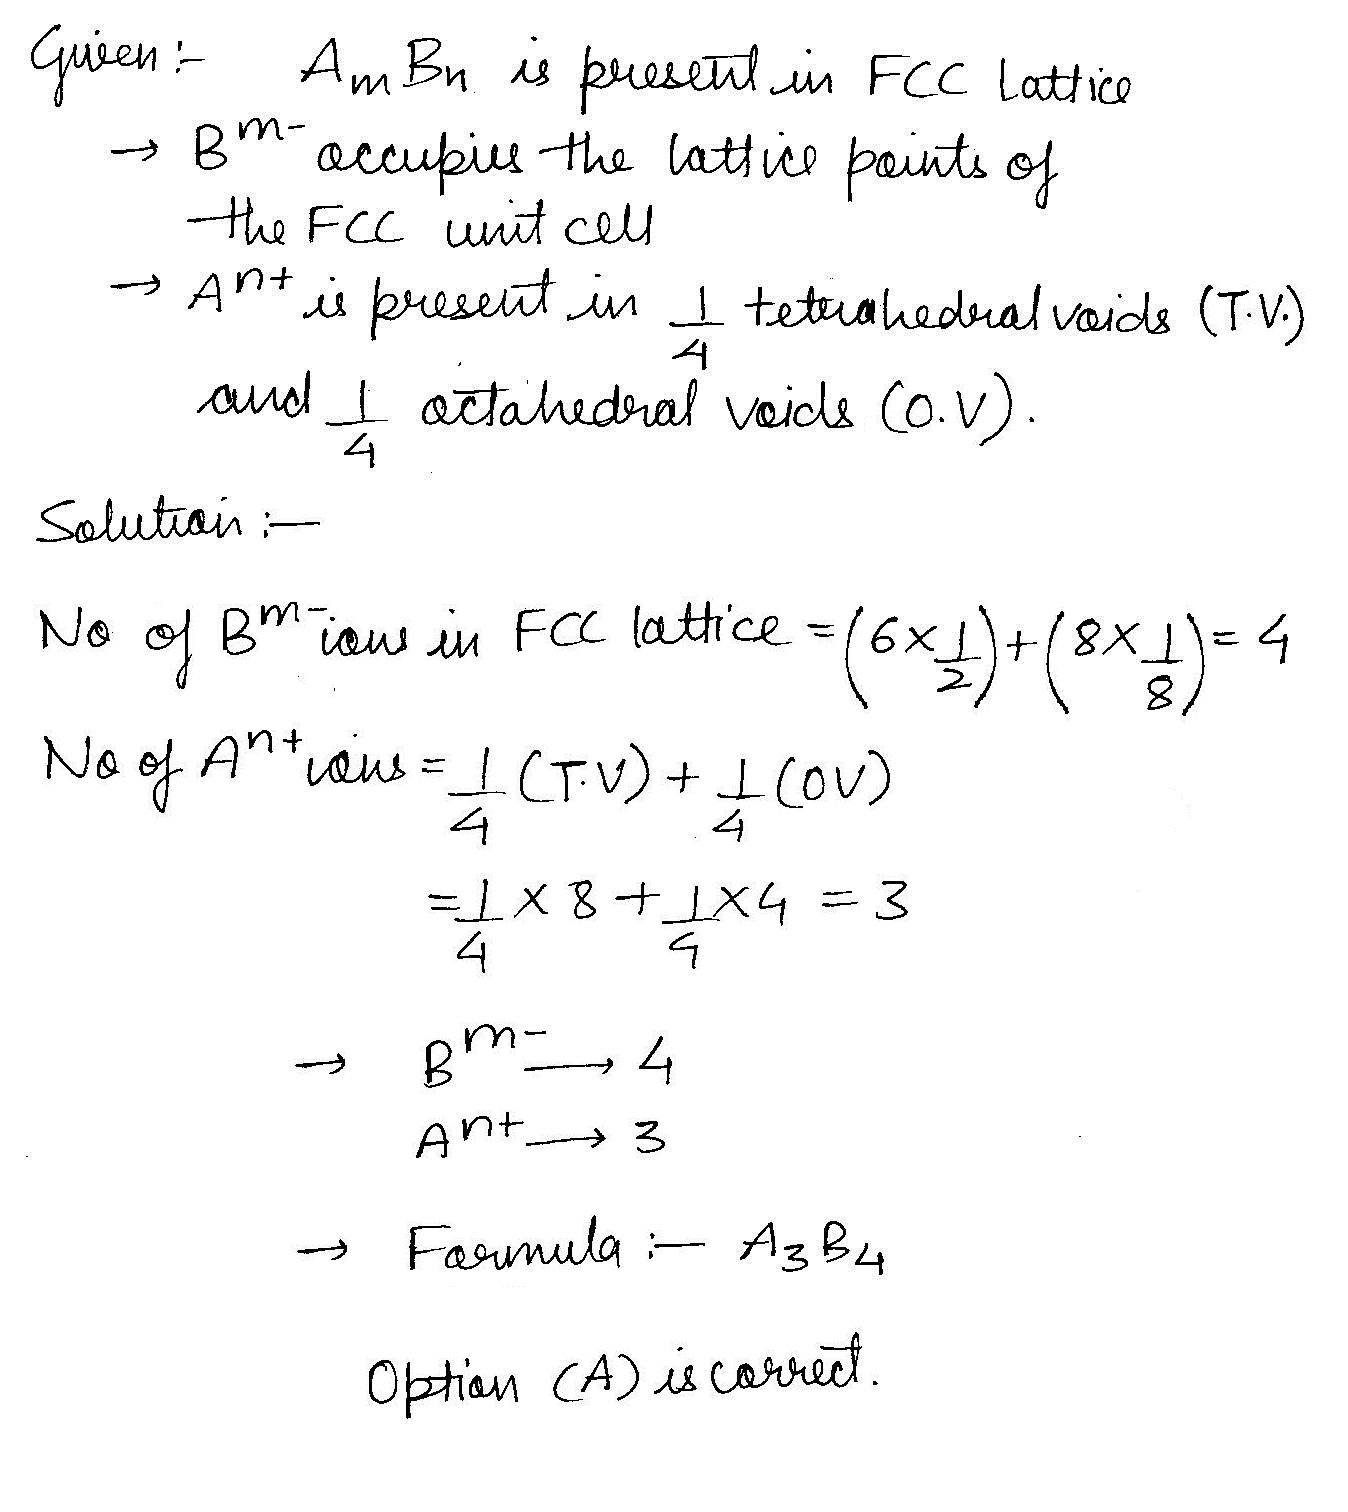 Given :- AmBn is present in FCC Lattice
→ B^m- occupies the lattice points of
the FCC unit cell
→ A^n+ is present in 1/4 tetrahedral voids (T.V.)
and 1/4 octahedral voids (O.V).
Solution :-
No of B^m- ions in FCC lattice = (6 × 1/2) + (8 × 1/8) = 4
No of A^n+ ions = 1/4 (T.V) + 1/4 (OV)
= 1/4 × 8 + 1/4 × 4 = 3
→ B^m- → 4
A^n+ → 3
→ Formula :- A₃B₄
Option (A) is correct.